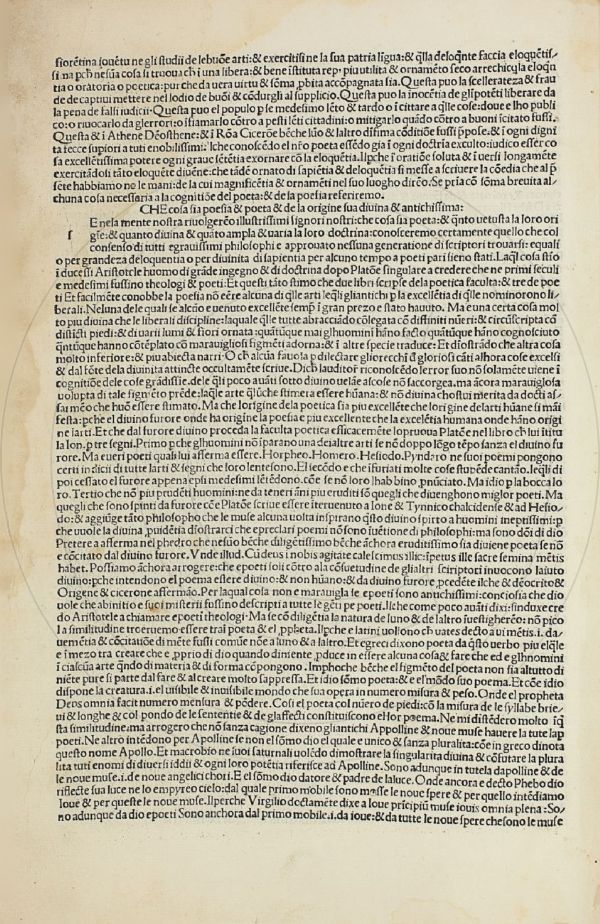 fiorẽtina iouẽtu ne gli studii de lebuõe arti: & exercitisi ne la sua patria lĩgua: & q̃lla deloq̃nte faccia eloquẽtis/
si na pch nesũa cosa si truoua ch ĩ una libera: & bene ĩstituta rep, piu utilita & ornamẽto seco arrechi q̃la eloq̃n
tia o oratoria o poetica: pur che da uera uirtu & sõma ,pbita accõpagnata sia. Questa puo la scellerateza & frau
de de captiui mettere nel lodio de buõi & cõdurgli al supplicio. Questa puo la inocẽtia de gli põteti liberare da
la pena de falsi iudicii: Questa puo el populo p se medesimo lẽto & tardo o ĩcittare a q̃lle cose: doue e lho public/
co: o riuocarlo da glerrori: o ĩfiamarlo cõtro a pessi lẽti cittadini: o mitigarlo quãdo cõtro a buoni ĩcitato fussi.
Questa & ĩ Athene Dẽosthene: & ĩ Rõa Cicerõe bẽche lũo & laltro dĩfima cõditiõe fussĩ ,ppose: & ĩ ogni digni
ta fecce supiori a tuti enobilissimi. Ilche conoscẽdo el nr̃o poeta essẽdo gia ĩ ogni doctrĩa exculto: iudico esser co
sa excellẽtissima potere ogni graue sẽtẽtia exornare cõ la eloquẽtia. Ilpche ĩ oratiõe soluta & ĩ uersi longamẽte
exercitãdosi ĩ tãto eloquẽte diuẽne: che tãdẽ ornato di sapiẽtia & deloquẽtia si messe a scriuere la cõedia che al p̃
sẽte habbiamo ne le mani: de la cui magnificẽtia & ornamẽti nel suo luogho dirẽo. Se pria cõ sõma breuita al/
chuna cosa necessaria a la cognitiõe del poeta: & de la poesia referiremo.
CHE cosa sia poesia & poeta & de la origine sua diuina & antichissima:
E nela mente nostra riuolgerẽo illustrissimi signori nostri: che cosa sia poeta: & q̃nto uetusta la loro ori
s
gĩe: & quanto diuina & quato ampla & uaria la loro doctrina: conosceremo certamente quello che col
consenso di tutti egrauissimi philosophi e approuato nessuna generatione di scriptori trouarsi: equali
o per grandeza deloquentia o per diuinita di sapientia per alcuno tempo a poeti pari sieno stati. Laq̃l cosa stio
ĩducessi Aristotele huomo di grãde ingegno & di doctrina dopo Platõe singulare a credere che ne primi seculi
e medesimi fussino theologi & poeti: Et questi tãto stimo che due libri scripse de la poetica faculta: & tre de poe
ti Et facilmẽte conobbe la poesia nõ eẽre alcuna di q̃lle arti leq̃li gliantichi p la excellẽtia di q̃lle nominorono li/
berali. Ne luna dele quali se alcũo e uenuto excellẽte semp ĩ gran prezo e stato hauuto. Ma e una certa cosa mol
to piu diuina che le liberali discipline: laquale q̃lle tutte abracciado cõlegata cõ diffiniti nũeri: & circũscripta cõ
distĩcti piedi: & di uarii lumi & fiori ornata: quatũque mai glhuomini hãno facto quatũque hãno cognosciuto
q̃ntũque hãno cõtẽplato cõ marauigliosi figmẽti adorna: & ĩ altre specie traduce: Et dĩostrãdo che altra cosa
molto inferiore: & piu abiecta narri. O ch alcũa fauola p dilectare gliorecchi d gloriosi cãti alhora cose excelsi
& dal fõte dela diuinita attincte occultamẽte scriue. Dich lauditor riconoscẽdo lerror suo nõ solamẽte uiene ĩ
cognitiõe dele cose grãdissĩe. dele q̃li poco auãti sotto diuino uelãe alcose nõ saccorgea. ma ãcora marauigliosa
uolupta di tale figmẽto prẽde: laq̃le arte q̃lũche stimera essere hũana: & nõ diuina chostui merita da docti as/
sai mẽo che huõ essere stimato. Ma che lorigine dela poetica sia piu excellẽte che lorigine delarti hũane si mãi
festa: pche el diuino furore onde ha origine la poesia e piu excellente che la excellẽtia humana onde hãno origi
ne larti. Et che dal furore diuino proceda la faculta poetica efficacemẽte lo pruoua Platõe nel libro ch lui ititu
la Ion. p tre segni. Primo p che glhuomini nõ iparano una deialtre arti se nõ doppo lõgo tẽpo sanza el diuino fu
rore. Ma eueri poeti quali lui afferma essere. Horpheo. Homero. Hesiodo. Pyndaro ne suoi poemi pongono
certi indicii di tutte larti & segni che loro lentesono. El secõdo e che ifuriati molte cose stupẽde cantão. leq̃li di
poi cessato el furore apena epsi medesimi lẽtẽdono. cõe se nõ loro lhabbino ,pnũciato. Ma idio p la bocca lo
ro. Tertio che nõ piu prudẽti huomini: ne da teneri ãni piu eruditi sõ quegli che diuenghono miglior poeti. Ma
quegli che sono spinti da furore cõe Platõe scriue essere iteruenuto a Ione & Tynnico chalcidense & ad Hesio/
do: & aggiũge tãto philosopho che le muse alcuna uolta inspirano q̃sto diuino spirto a huomini ineptissimi: p
che uuole la diuina ,puidẽtia dĩostrarci che epreclari poemi nõ sono ĩuẽtione di philosophi: ma sono dõi di dio
Pretere a afferma nel phedro che nesũo bẽche diligẽtissimo bẽche ãchora eruditissimo sia diuiene poeta se nõ
e cõcitato dal diuino furore. Vnde illud. Cũ deus i nobis agitãte calescimus illic: ĩpetus ille sacre semina mẽtis
habet. Possiamo ãchora arrogere: che epoeti soli cõtro ala cõsuetudine de glialtri scriptori inuocono laiuto
diuino: pche intendono el poema essere diuino: & non hũano: & da diuino furore ,pcedẽte ilche & dẽocrito &
Origene & cicerone affermão. Per laqual cosa non e marauigla se epoeti sono antichissimi: conciosia che dio
uole che abinitio e suoi misterii fussino descripti a tutte le gẽti pe poeti. Ilche come poco auãti dixi: ĩnduxe cre
do Aristotele a chiamare epoeti theologi. Ma se cõ diligẽtia la natura de luno & de laltro ĩuestigherẽo: nõ pico
la similitudine troeruemo essere tral poeta & el ,ppheta. Ilpche e latini uollono ch uates decto a ui mẽtis. i. da
uemẽtia & cõcitatiõe di mẽte fussi comũe nõe a luno & a laltro. Et egreci dixono poeta da q̃sto uerbo piu elq̃le
e ĩ mezo tra creare che e ,pprio di dio quando diniente ,pduce in essere alcuna cosa & fare che ed e glhnomini
ĩ ciascũa arte q̃ndo di materia & di forma cõpongono. Imphoche bẽche el figmẽto del poeta non sia altutto di
niẽte pure si parte dal fare & al creare molto sappressa. Et idio sõmo poeta: & e el mõdo suo poema. Et cõe idio
dispone la creatura. i. el uisibile & inuisibile mondo che sua opera in numero misura & peso. Onde el propheta
Deos omnia facit numero mensura & põdere. Cosi el poeta col nũero de piedi: cõ la misura de le syllabe brie/
ui & longhe & col pondo de le sententie & de glaffecti constituiscono el lor poema. Ne mi distẽdero molto ĩ q̃
sta similitudine: ma arrogero che nõ sanza cagione dixeno gliantichi Appolline & noue muse hauere la tute la p
poeti. Ne altro intẽdono per Apolline se non el sõmo dio el quale e unico & sanza pluralita: cõe in greco dinota
questo nome Apollo. Et macrobio ne suoi saturnali uolẽdo dimostrare la singularita diuina & cõfutare la plura
lita tuti enomi di diuersi iddii & ogni loro potẽtia riferisce ad Apolline. Sono adunque in tutela dapolline & de
le noue muse. i. de noue angelici chori. E el sõmo dio datore & padre de laluce. Onde ancora e decto Phebo dio
riflecte sua luce ne lo empyreo cielo: dal quale primo mobile sono mosse le noue spere & per quello intẽdiamo
Ioue & per queste le noue muse. Ilperche Virgilio doctamẽte dixe a Ioue prĩcipiũ muse iouis omnia plena: So/
no adunque da dio epoeti Sono anchora dal primo mobile. i. da ioue: & da tutte le noue spere che sono le muse